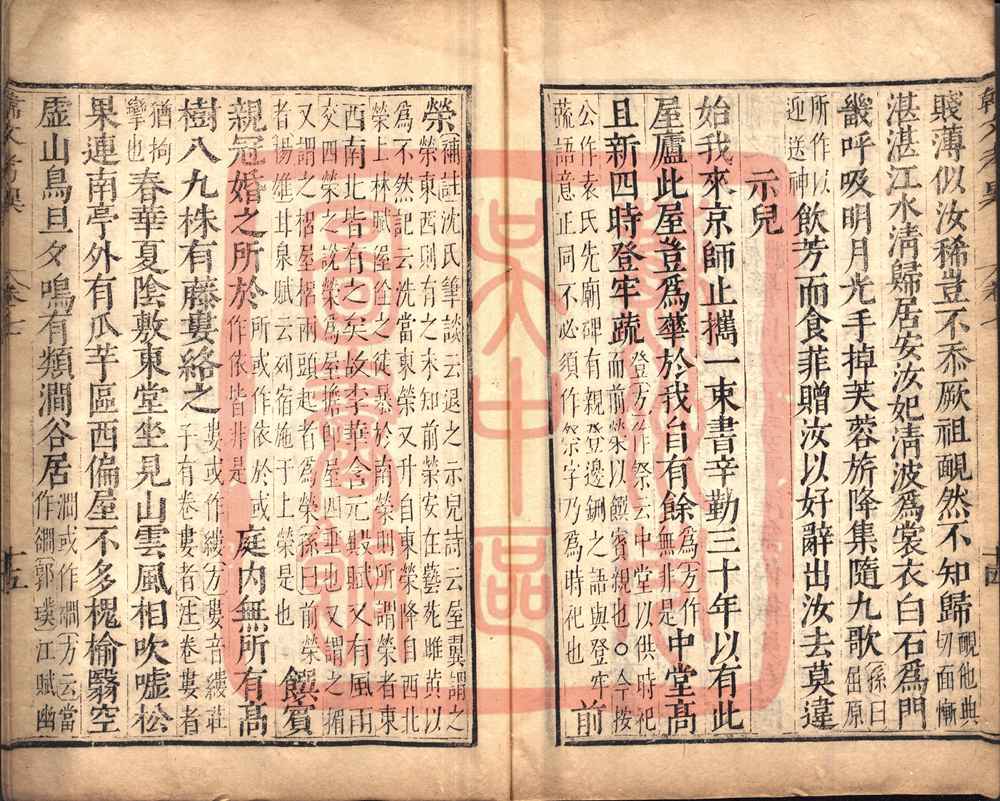 賤薄似汝稀豈不忝厥祖靦然不知歸靦他典切面慚
湛湛江水清歸居安汝妃清波爲裳衣白石爲門
畿呼吸明月光手掉芙蓉旂降集隨九歌孫曰屈原
所作以迎送神飲芳而食菲贈汝以好辭出汝去莫違
示兒
始我來京師止攜一束書辛勤三十年以有此
屋廬此屋豈爲華於我自有餘爲方作無非是中堂高
且新四時登牢蔬登方作祭云中堂以供時祀而前榮以饌賓親也○今按
公作袁氏先廟碑有親登邊鉶之語與登牢蔬語意正同不必須作祭字乃爲時祀也前
榮補註沈氏筆談云退之示兒詩云屋翼謂之榮東西則有之未知前榮安在藝苑雌黃以
爲不然記云洗當東榮又升自東榮降自西北榮上林賦偓佺之徒暴於南榮則所謂榮者東
西南北皆有之矣故李華含元殿賦又有風雨交四榮之說榮爲屋檐即屋四垂也又謂之楣
又謂之梠屋梠兩頭起者爲榮孫曰前榮者揚雄甘泉賦云列宿施于上榮是也饌賓
親冠婚之所於所或作依於或作依皆非是庭内無所有高
樹八九株有藤婁絡之婁或作縷方婁音縷莊子有卷婁者注卷婁者
猶拘攣也春華夏陰敷東堂坐見山雲風相吹嘘松
果連南亭外有瓜芋區西偏屋不多槐榆翳空
虛山鳥旦夕鳴有類澗谷居澗或作㵎方云當作磵郭璞江賦幽
十五